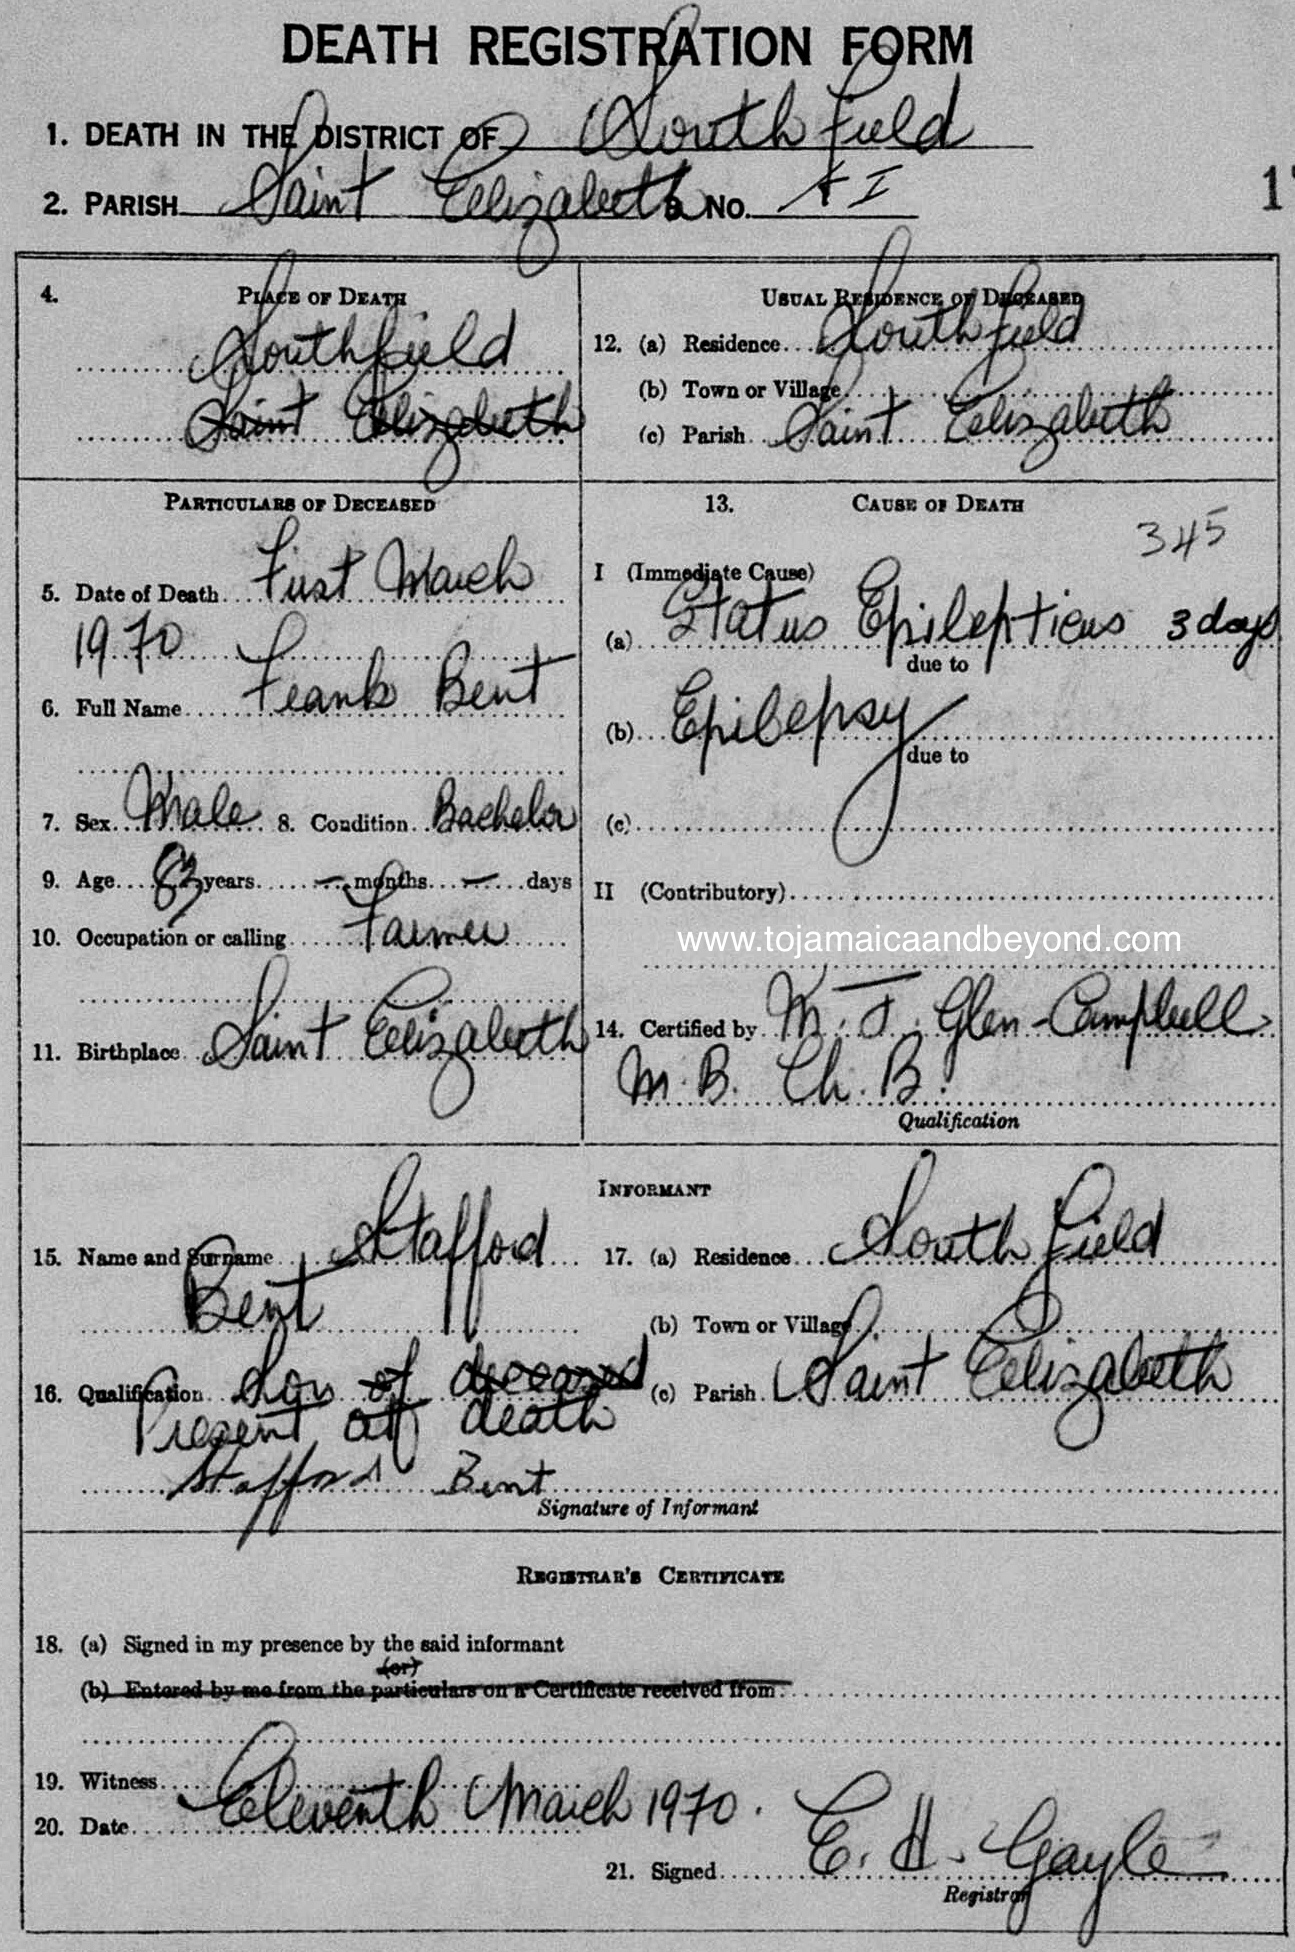 DEATH REGISTRATION FORM
1. DEATH IN THE DISTRICT OF Southfield
2. PARISH Saint Elizabeth 3. NO. XI
1
4. PLACE OF DEATH
Southfield
Saint Elizabeth
USUAL RESIDENCE OF DECEASED
12. (a) Residence Southfield
(b) Town or Village
(c) Parish Saint Elizabeth
PARTICULARS OF DECEASED
5. Date of Death First March
1970
6. Full Name Frank Bent
7. Sex Male 8. Condition Bachelor
9. Age 83 years — months — days
10. Occupation or calling Farmer
11. Birthplace Saint Elizabeth
13. CAUSE OF DEATH
345
I (Immediate Cause)
(a) Status Epilepticus 3 days
due to
(b) Epilepsy
due to
(c)
II (Contributory)
www.tojamaicaandbeyond.com
14. Certified by M. J. Glen-Campbell
M.B. Ch.B.
Qualification
INFORMANT
15. Name and Surname Stafford
Bent
16. Qualification Son of deceased
Present at death
Stafford Bent
Signature of Informant
17. (a) Residence Southfield
(b) Town or Village
(c) Parish Saint Elizabeth
REGISTRAR'S CERTIFICATE
18. (a) Signed in my presence by the said informant
(or)
(b) Entered by me from the particulars on a Certificate received from
19. Witness
20. Date Eleventh March 1970.
21. Signed E. H. Gayle
Registrar